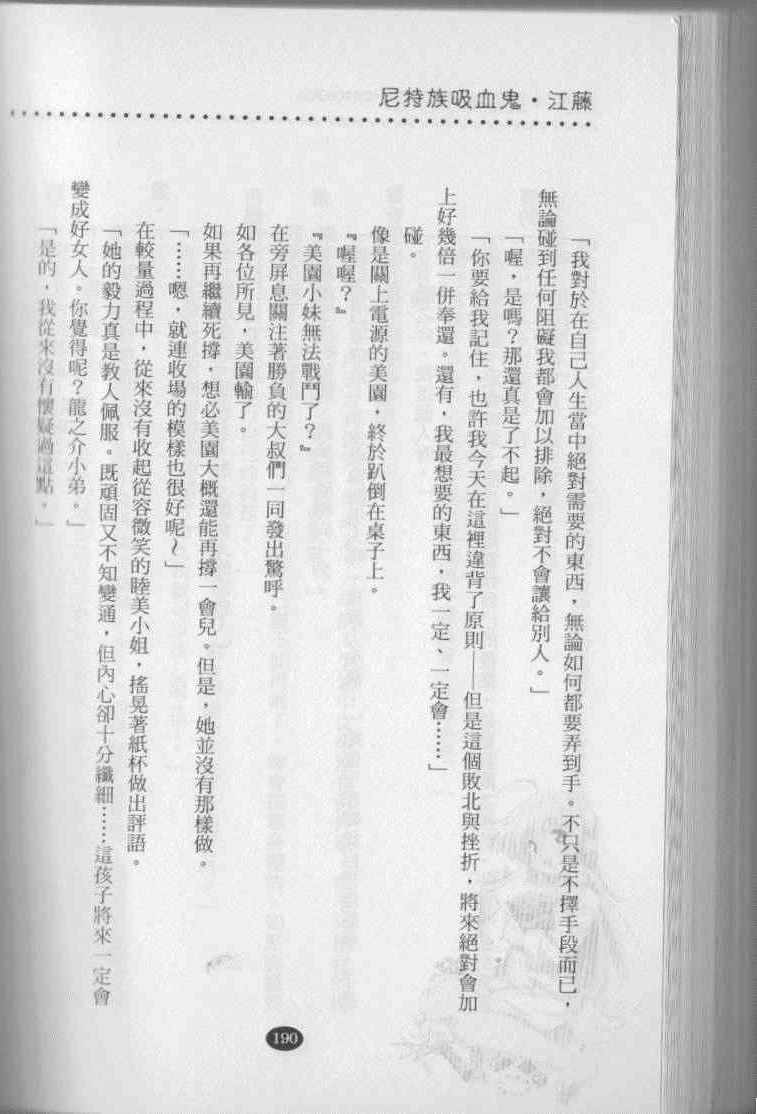 尼特族吸血鬼・江藤
「我對於在自己人生當中絕對需要的東西，無論如何都要弄到手。不只是不擇手段而已，
無論碰到任何阻礙我都會加以排除，絕對不會讓給別人。」
「喔，是嗎？那還真是了不起。」
「你要給我記住，也許我今天在這裡違背了原則——但是這個敗北與挫折，將來絕對會加
上好幾倍一併奉還。還有，我最想要的東西，我一定、一定會……」
碰。
像是關上電源的美園，終於趴倒在桌子上。
『喔喔？』
『美園小妹無法戰鬥了？』
在旁屏息關注著勝負的大叔們一同發出驚呼。
如各位所見，美園輸了。
如果再繼續死撐，想必美園大概還能再撐一會兒。但是，她並沒有那樣做。
「……嗯，就連收場的模樣也很好呢～」
在較量過程中，從來沒有收起從容微笑的睦美小姐，搖晃著紙杯做出評語。
「她的毅力真是教人佩服。既頑固又不知變通，但內心卻十分纖細……這孩子將來一定會
變成好女人。你覺得呢？龍之介小弟。」
「是的，我從來沒有懷疑過這點。」
190